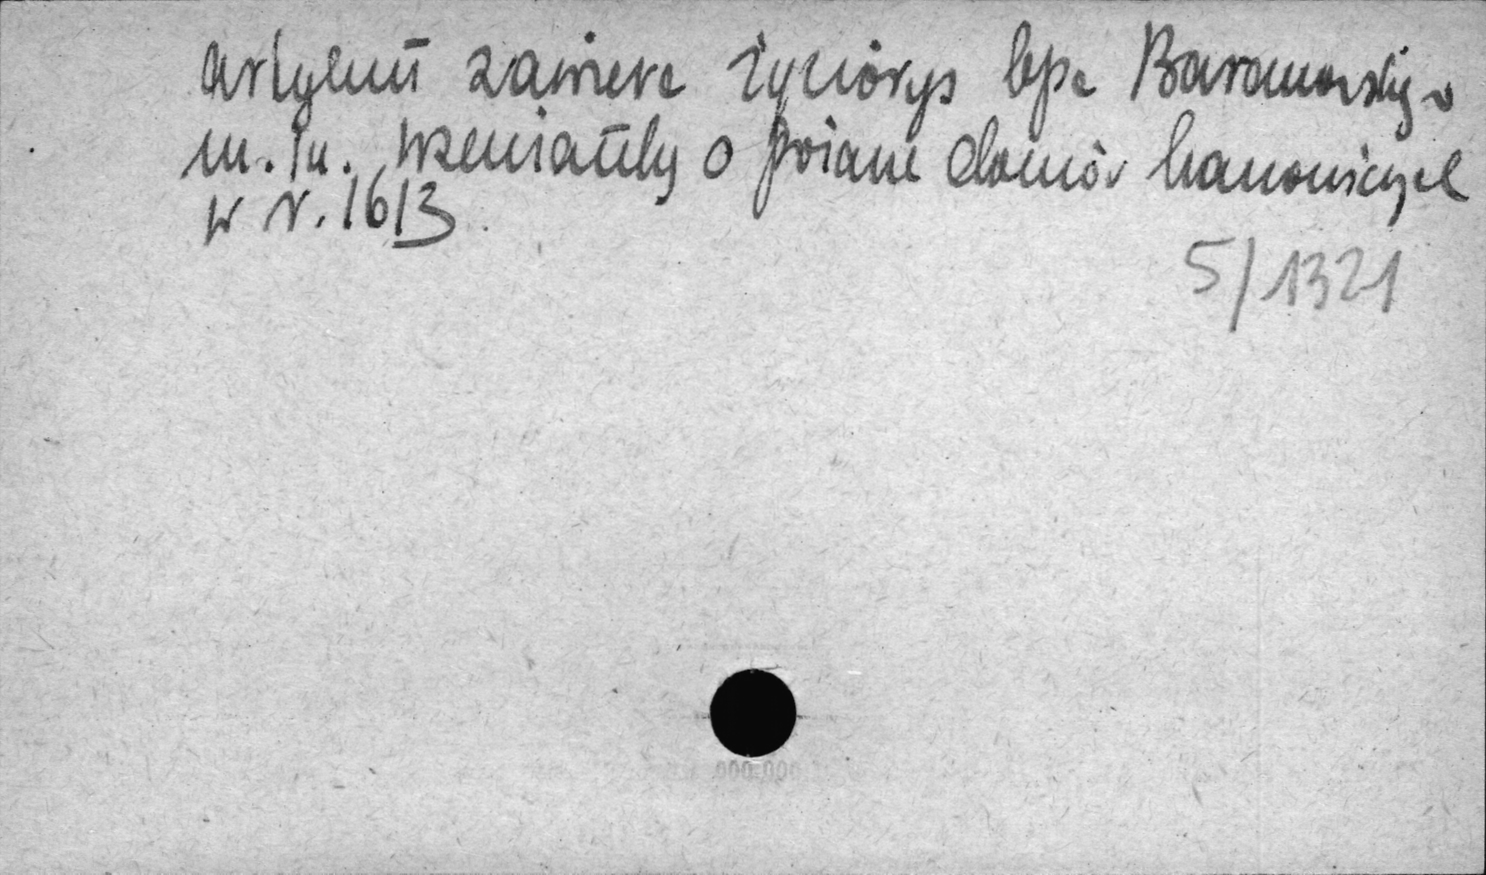 artykuł zawiera życiorys bpa Baranowskiego
m.in. wzmianki o pożarze domów kanoniczych
w r. 1613.
5/1321